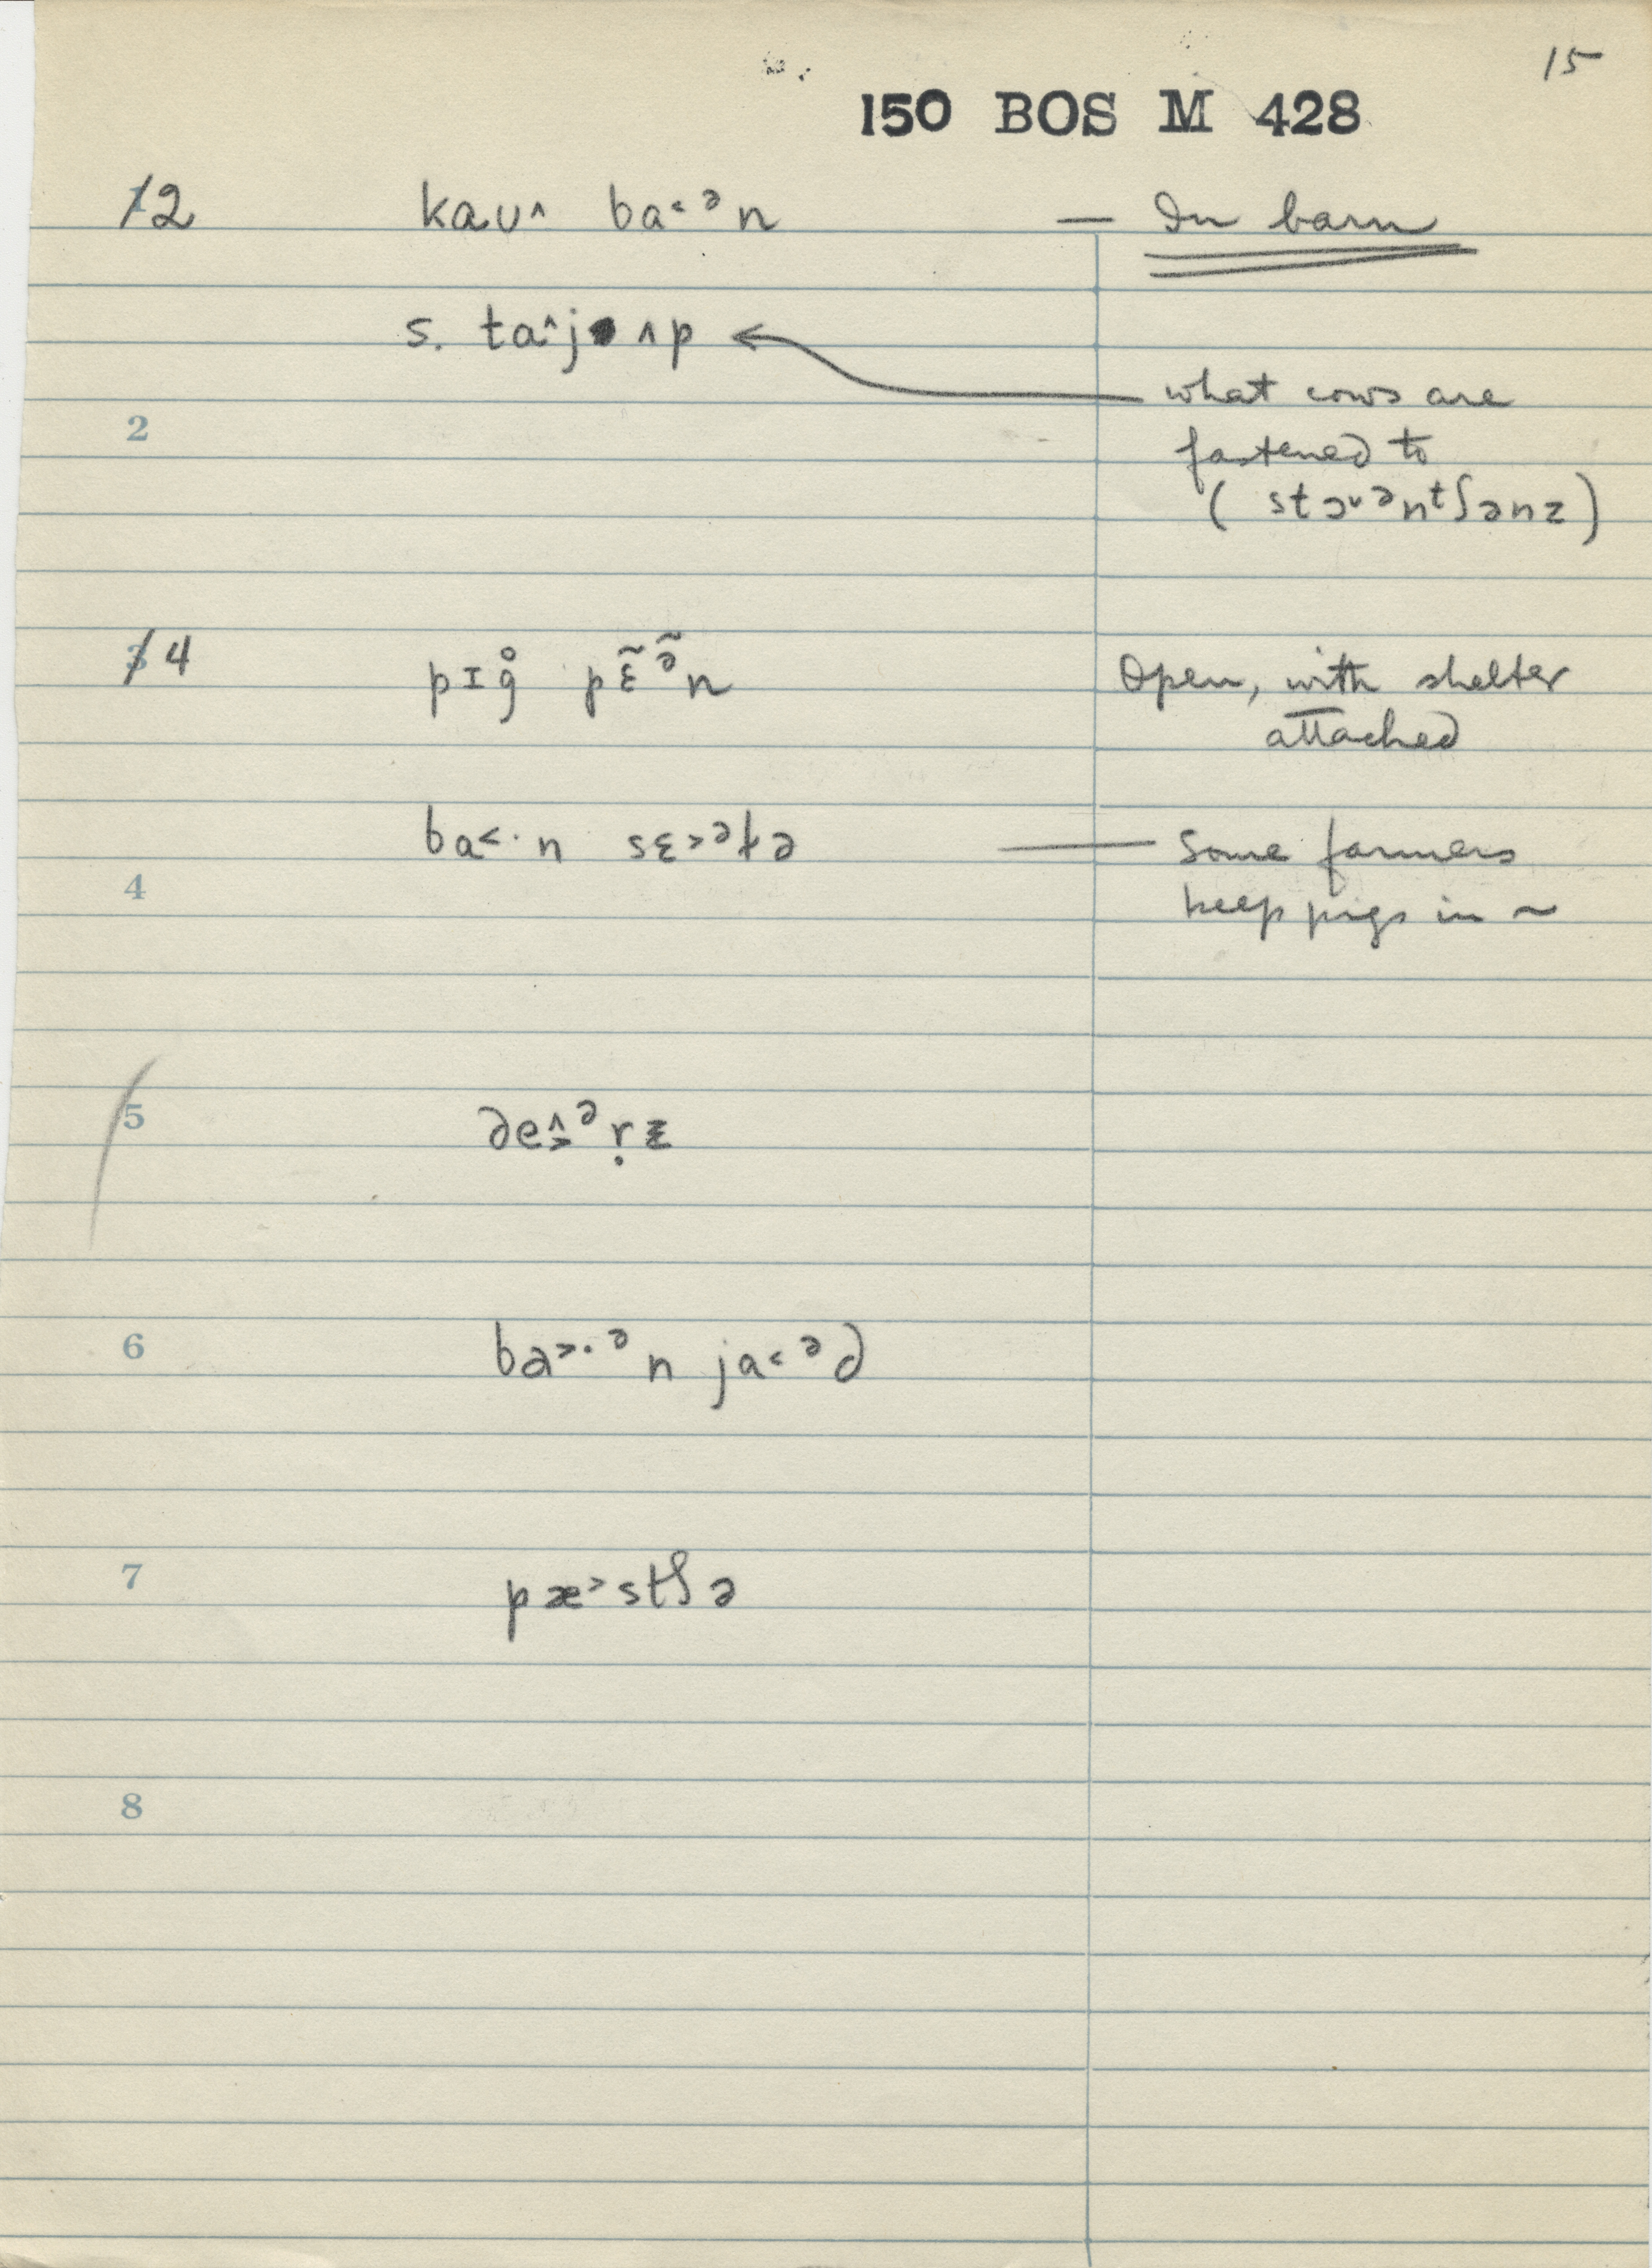 15
150 BOS M 428
1/2 kaʊ^ ba˂ᵊn — In barn
s. ta^·j ʌp ←
what cows are
2
fastened to
( stɔ˅ᵊnᵗʃənz )
3/4 pɪg̊ pɛ̃ᵊ̃n Open, with shelter
attached
ba˂·n sɛ˃ᵊɫə — Some farmers
4 keep pigs in ~
5
6
ba˃·ᵊn ja˂ᵊd
7 pæ˃stʃə
8